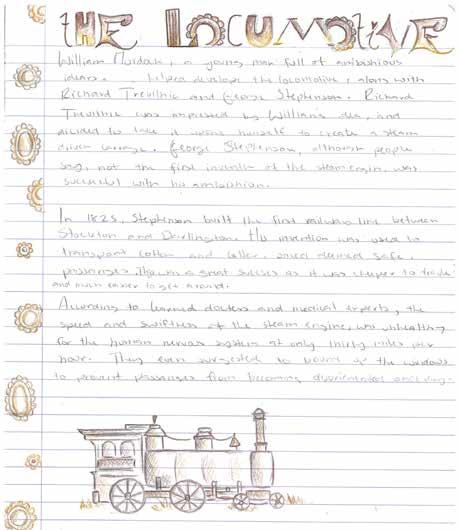 THE LOCOMOTIVE
William Murdah, a young man full of ambishious
ideers. helped develope the locomotive, along with
Richard Trevithic and George Stephenson. Richard
Trevithic was impressed by William's idea, and
dicided to take it upons himself to create a steam
driven carrage. George Stephenson, although people
say, not the first inventer of the steamengin, was
successful with his ambishion.
In 1825, Stephenson built the first railway line between
Stockton and Darlington. His invention was used to
transport cotton and later, once deemed safe,
passenges. This was a great sucsess as it was cheeper to trade
and much easier to get around.
According to learned docters and medical experts, the
speed and swiftness of the steam engine, was unhealthy
for the human nervas system at only thirty miles per
hour. They even surgested to bound up the windows
to prevent passenges from becoming disorientated